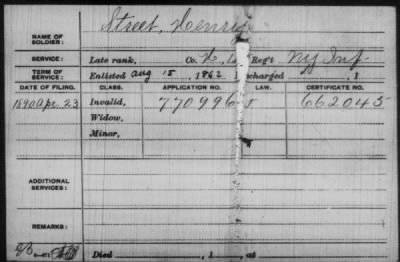 Street, Henry
NAME OF SOLDIER:
SERVICE: Late rank, Co. H, Reg't NY Inf.
TERM OF SERVICE: Enlisted Aug 15, 1862 Discharged , 1
DATE OF FILING. CLASS. APPLICATION NO. LAW. CERTIFICATE NO.
1890 Apr. 23 Invalid, 770996 662045
Widow,
Minor,
ADDITIONAL SERVICES:
REMARKS:
Died , 1 , at